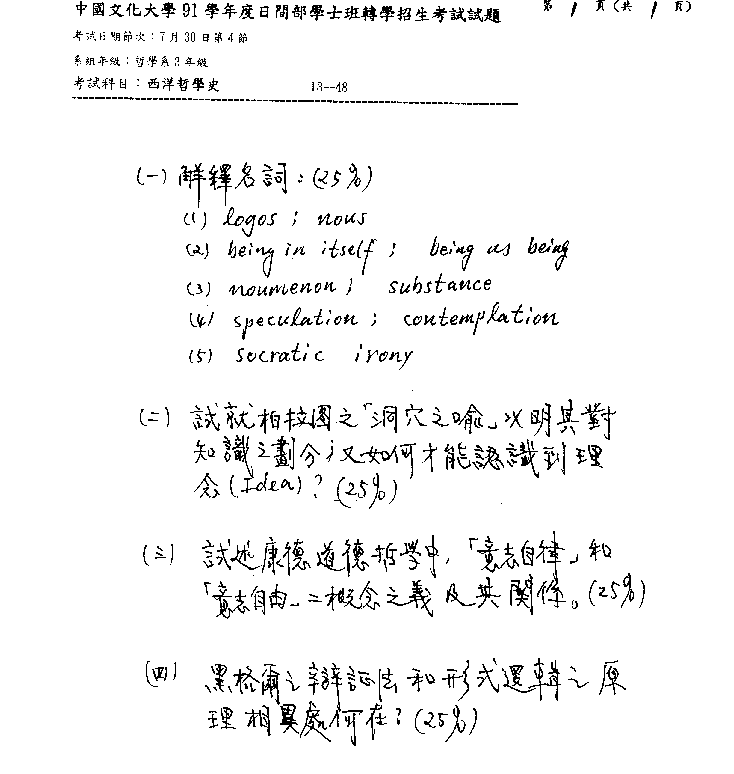 中國文化大學91學年度日間部學士班轉學招生考試試題 第 1 頁(共 1 頁)
考試日期節次：7月30日第4節
系組年級：哲學系3年級
考試科目：西洋哲學史 13--48
(一) 解釋名詞：(25%)
(1) logos ; nous
(2) being in itself ; being as being
(3) noumenon ; substance
(4) speculation ; contemplation
(5) socratic irony
(二) 試就柏拉图之「洞穴之喻」以明其對
知識之劃分；又如何才能認識到理
念(Idea)？(25%)
(三) 試述康德道德哲學中，「意志自律」和
「意志自由」二概念之義及其關係。(25%)
(四) 黑格爾之辯証法和形式邏輯之原
理相異處何在？(25%)